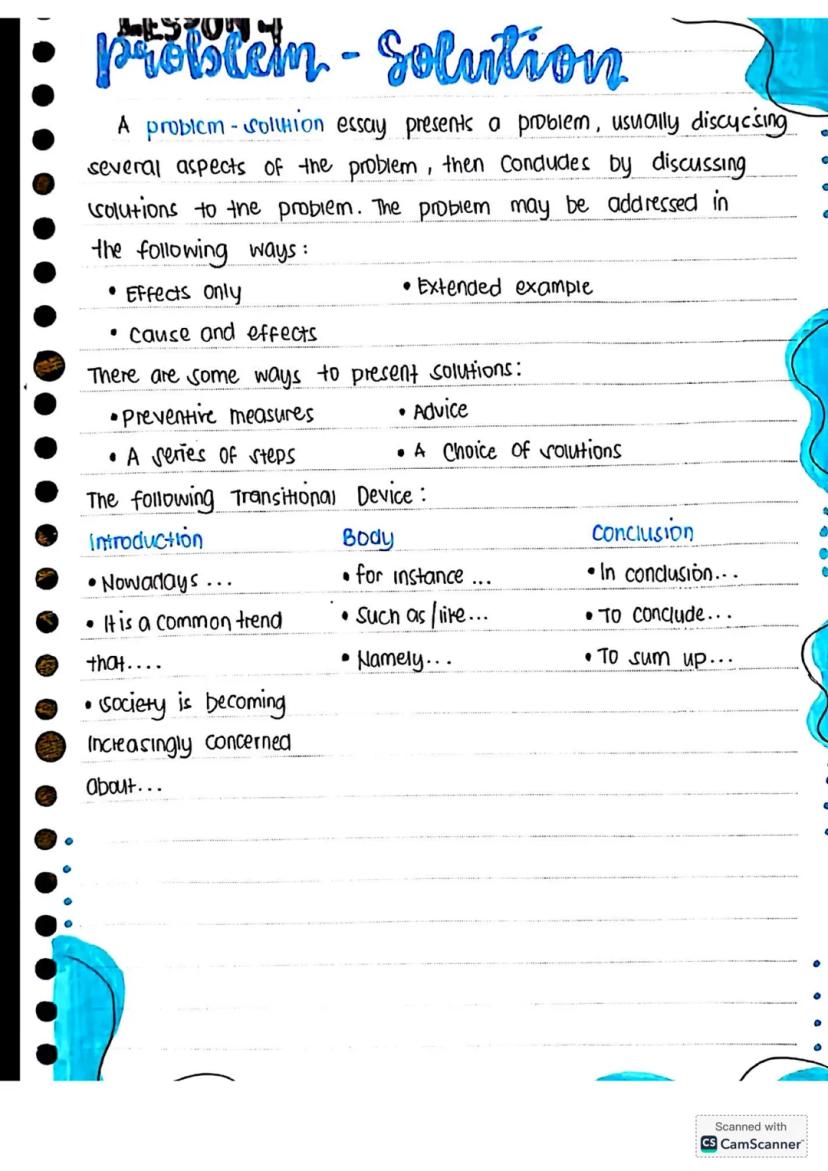 LESSON 4
Problem - Solution
A problem-solution essay presents a problem, usually discussing
several aspects of the problem, then concludes by discussing
solutions to the problem. The problem may be addressed in
the following ways:
• Effects only • Extended example
• Cause and effects
There are some ways to present solutions:
• Preventive measures • Advice
• A series of steps • A Choice of solutions
The following Transitional Device:
Introduction Body Conclusion
• Nowadays ... • for instance ... • In conclusion...
• It is a common trend • Such as/like... • To conclude...
that.... • Namely... • To sum up...
• society is becoming
Increasingly concerned
about...
Scanned with
CS CamScanner